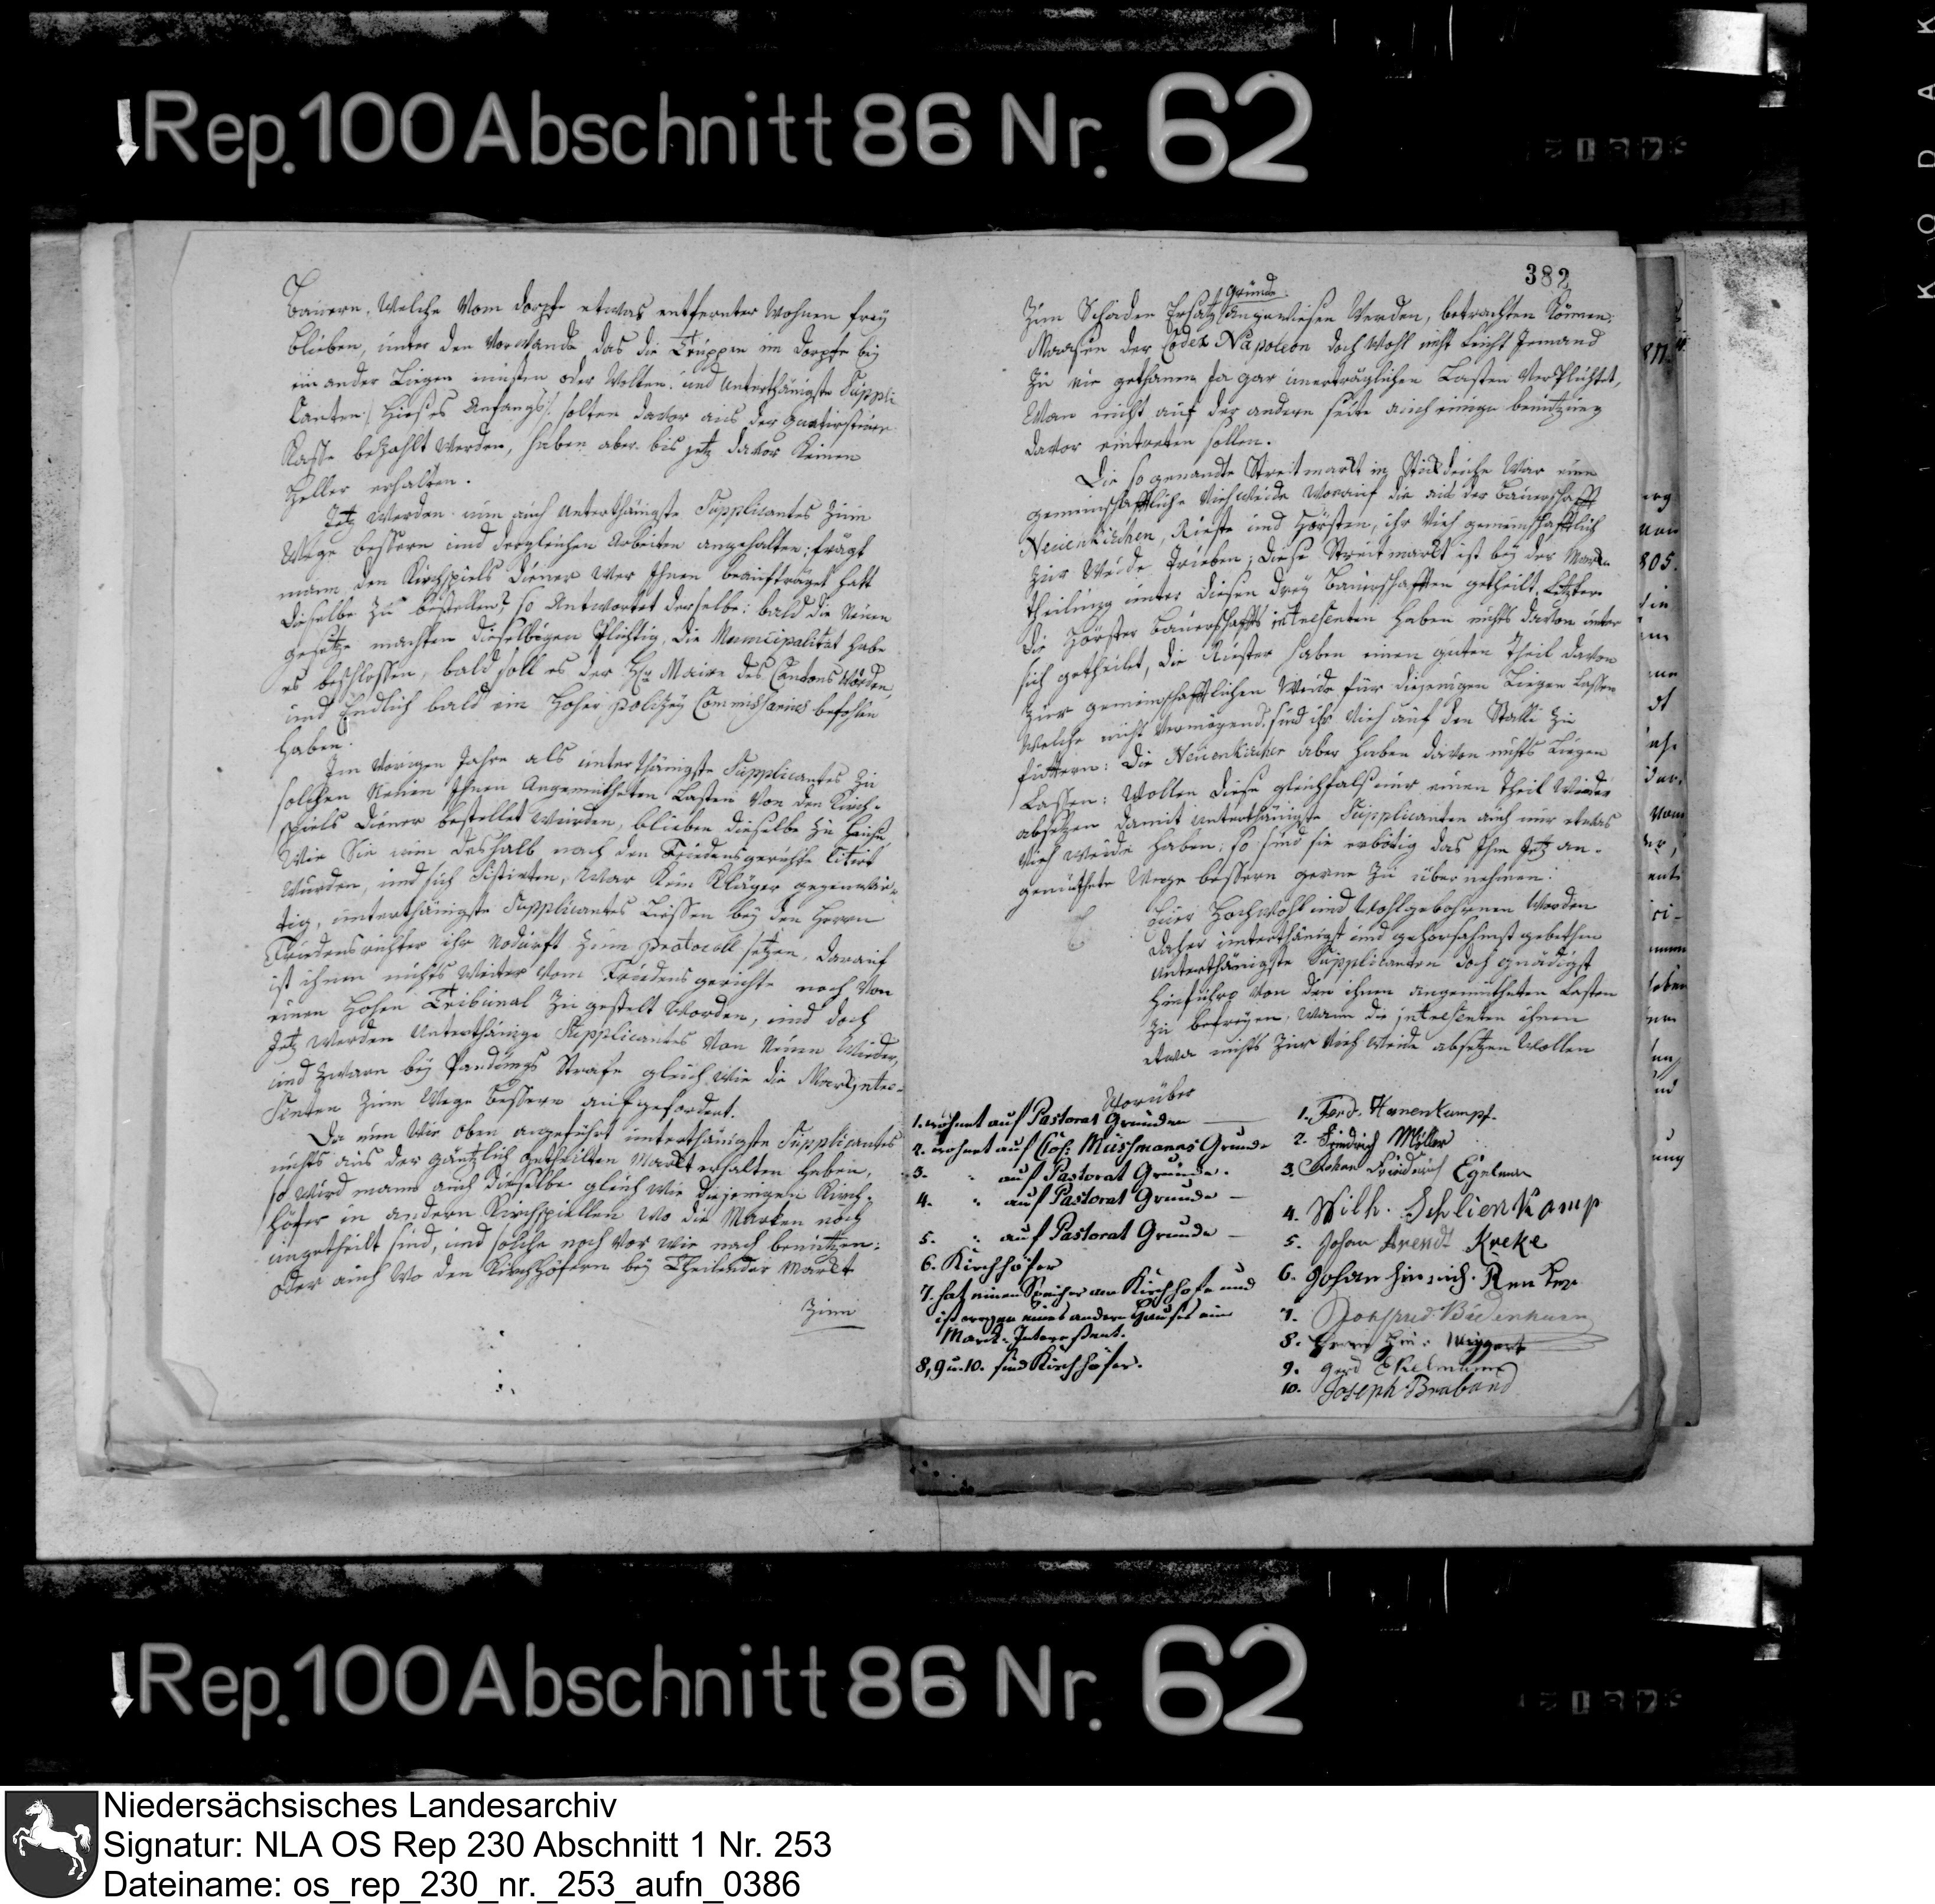 Rep. 100 Abschnitt 86 Nr. 62
Bauern, welche vom dorpfe etwas entfernter wohnen frey
blieben, unter den vorwande das die Truppen im dorpfe bey
ein ander Liegen müsten oder wolten. und unterthänigste Suppli
Canten /: hieß es Anfangs :/ solten davor aus der quatirsteuer
Kasse bezahlt werden, haben aber bis jetz davor keinen
Heller erhalten.
Jetz werden nun auch unterthänigste Supplicantes zum
Wege bessern und dergleichen Arbeiten angehalten; frägt
mann den Kirchspiels diener wer Ihnen beauftraget hatt
dieselbe zu bestellen? so Antwortet derselbe: bald die Neuen
gesetze machten dieselbigen Plichtig, die Municipalitet habe
es beschlossen, bald soll es der Hr Maire des Cantons Vörden,
und Endlich bald ein Hoher Polizey Commissarius befohlen
haben.
Im vorigen Jahre als unterthänigste Supplicantes zu
solchen Neuen Ihnen Angemutheten Lasten von den Kirch-
spiels diener bestellet wurden, blieben dieselbe zu Hause,
Wie Sie nun deshalb nach den Friedensgerichte Citirt
wurden, und sich Sistirten, war kein Kläger gegenwär-
tig, unterthänigste Supplicantes Liessen bey den Herrn
Friedensrichter ihr Nodurft zum Protocoll setzen, darauf
ist ihnen nichts weiter vom Friedensgerichte noch von
einen Hohen Tribunal zu gestelt worden, und doch
Jetz werden unterthänige Supplicantes von Neuen wieder,
und zwarn bey Pandungs Strafe gleich wie die Markjntre-
senten zum Wege bessern aufgefordert.
Da nun wie oben angeführt unterthänigste Supplicantes
nichts aus der gäntzlich getheilten Markt erhalten haben,
so wird mann auch dieselbe gleich wie diejenigen Kirch-
höfer in andern Kirchspiellen wo die Marken noch
ungetheilt sind, und solche noch vor wie nach benutzen:
oder auch wo den Kirchhöfern bey Theilender Markt
Zum
382
gründe
Zum Schaden Ersatz angewiesen werden, betrachten können.
Maasen der Codex Napoleon doch wohl nicht leicht Jemand
zu nie gethanen ja gar unerträglichen Lasten verplichtet,
Wan nicht auf der andern seite auch einige benutzung
davor eintreten sollen.
Die so genandte Streitmarkt in Stickteiche war eine
gemeinschafftliche Viehweide worauf die aus der Bauerschafft
Neuenkirchen, Rieste und Hörsten, ihr Vieh gemeinschafftlich
zur Weide Trieben; diese Streitmarkt ist bey der Marken
theilung unter diesen drey Bauerschafften getheilt. Letztere
die Hörster Bauerschaffts intresenten haben nichts davon unter
sich getheilet, die Riester haben einen guten Theil davon
zur gemeinschafftlichen Weide für diejenigen Liegen lassen
welche nicht vermögend sind ihr Vieh auf den Stalle zu
futtern: die Neuenkircher aber haben davon nichts Liegen
Lassen: wollen diese gleichfals nur einen Theil wieder
absetzen damit unterthänigste Supplicanten auch nur etwas
Vieh weide haben: so sind sie erbötig das Ihn Jetz an-
gemuthete Wege bessern gerne zu über nehmen:
Euer Hochwohl und Wohlgebohrnen werden
daher unterthänigst und gehorsahmst gebethen
unterthänigste Supplicanten doch gnädigst
hinführo von den ihnen angemutheten Lasten
zu befreyen, wann die jntresenten ihnen
etwa nichts zur Vieh weide absetzen wollen
Worüber
1. wohnet auf Pastorat Gründen
2. wohnet auf Col: Müssmanns Grunde
3. " auf Pastorat Grunde.
4. " auf Pastorat Grunde
5. " auf Pastorat Grunde
6. Kirchhöfer
7. hat einen Speicher am Kirchhofe und
ist wegen eines andern Hauses ein
Marck-Interessent.
8, 9 u. 10. sind Kirchhöfer.
1. Ferd. Hanenkampf.
2. Friedrich Möller
3. Johan Friederich Egelman
4. Wilh. Schlienkamp
5. Johan Arendt Kreke
6. Johan Hinrich Renker
7.
8. Herm Hin: Weggart
9. Gerd Ekelmann
10. Joseph Braband
Rep. 100 Abschnitt 86 Nr. 62
Niedersächsisches Landesarchiv
Signatur: NLA OS Rep 230 Abschnitt 1 Nr. 253
Dateiname: os_rep_230_nr._253_aufn_0386